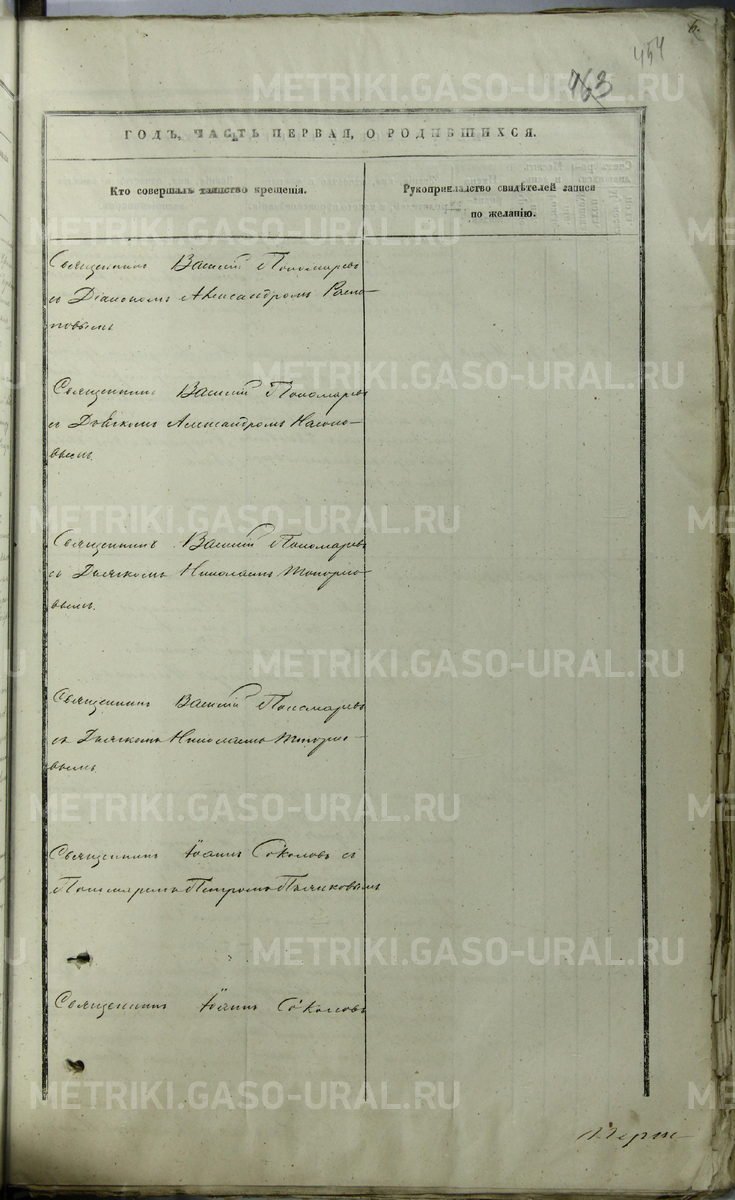 6.
454
463
ГОДЪ, ЧАСТЬ ПЕРВАЯ, О РОДИВШИХСЯ.
Кто совершалъ таинство крещенія.
Рукоприкладство свидѣтелей записи
по желанію.
Священникъ Василій Пономаревъ
съ Діакономъ Александромъ
Священникъ Василій Пономаревъ
съ Александромъ
вымъ.
Священникъ Василій Пономаревъ
съ Дьячкомъ Николаемъ Топорко-
вымъ.
Священникъ Василій Пономаревъ
съ Дьячкомъ Николаемъ
вымъ
Священникъ Іоаннъ Соколовъ съ
Пономаремъ Петромъ
Священникъ Іоаннъ Соколовъ
METRIKI.GASO-URAL.RU